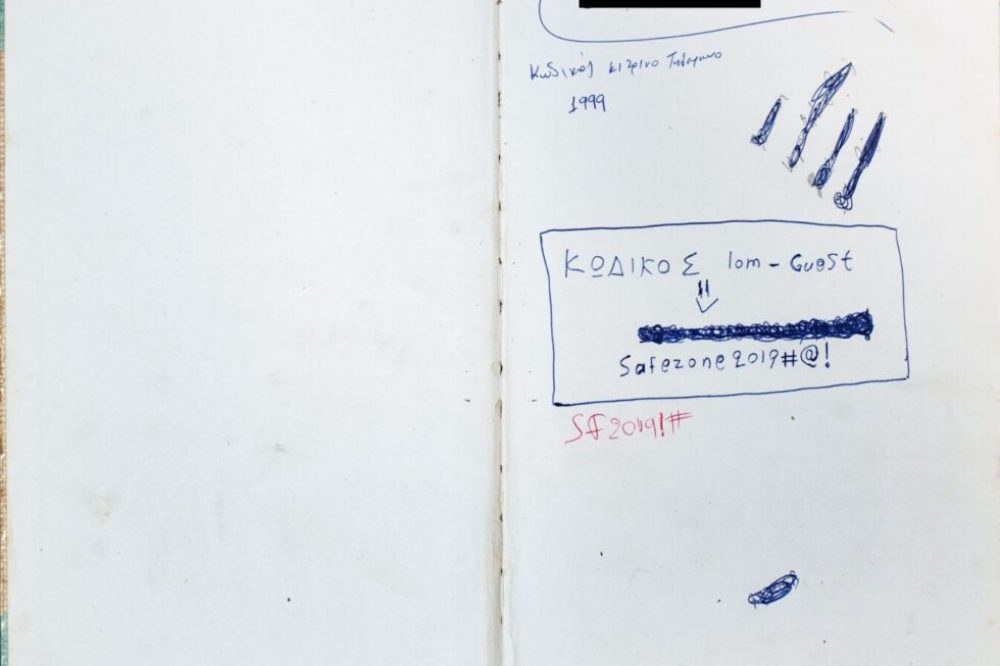 Κωδικός κίτρινο
1999
ΚΩΔΙΚΟΣ Iom - Guest
Safezone2019#@!
SF2019!#